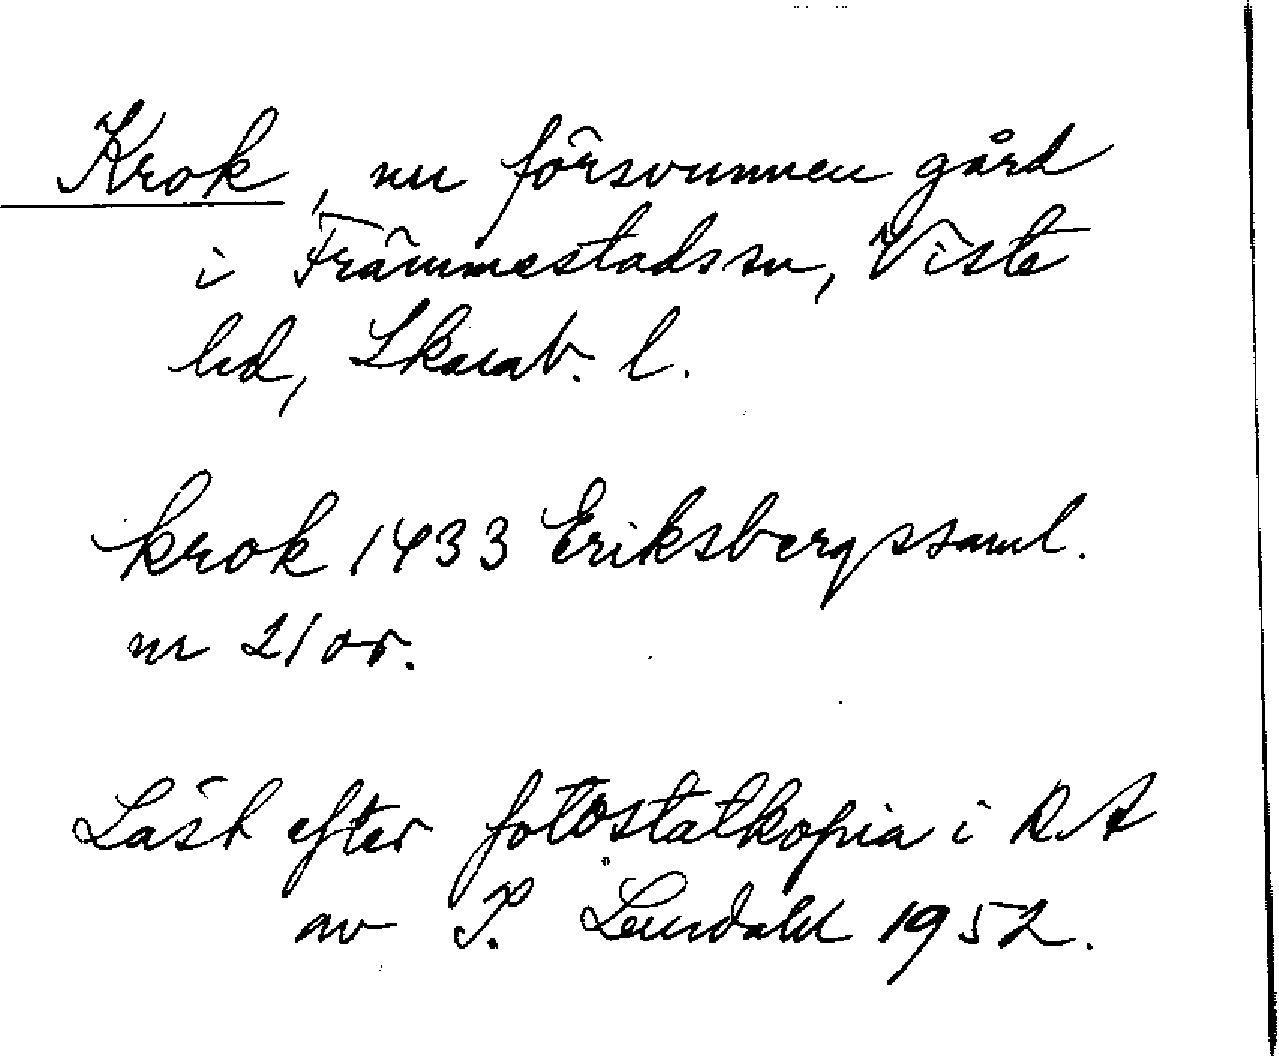 Krok, nu försvunnen gård
i Främmestads sn, Viste
hd, Skarab. l.
krok 1433 Eriksbergssaml.
nr 21 or.
Läst efter fotostatkopia i RA
av I. Lundahl 1952.